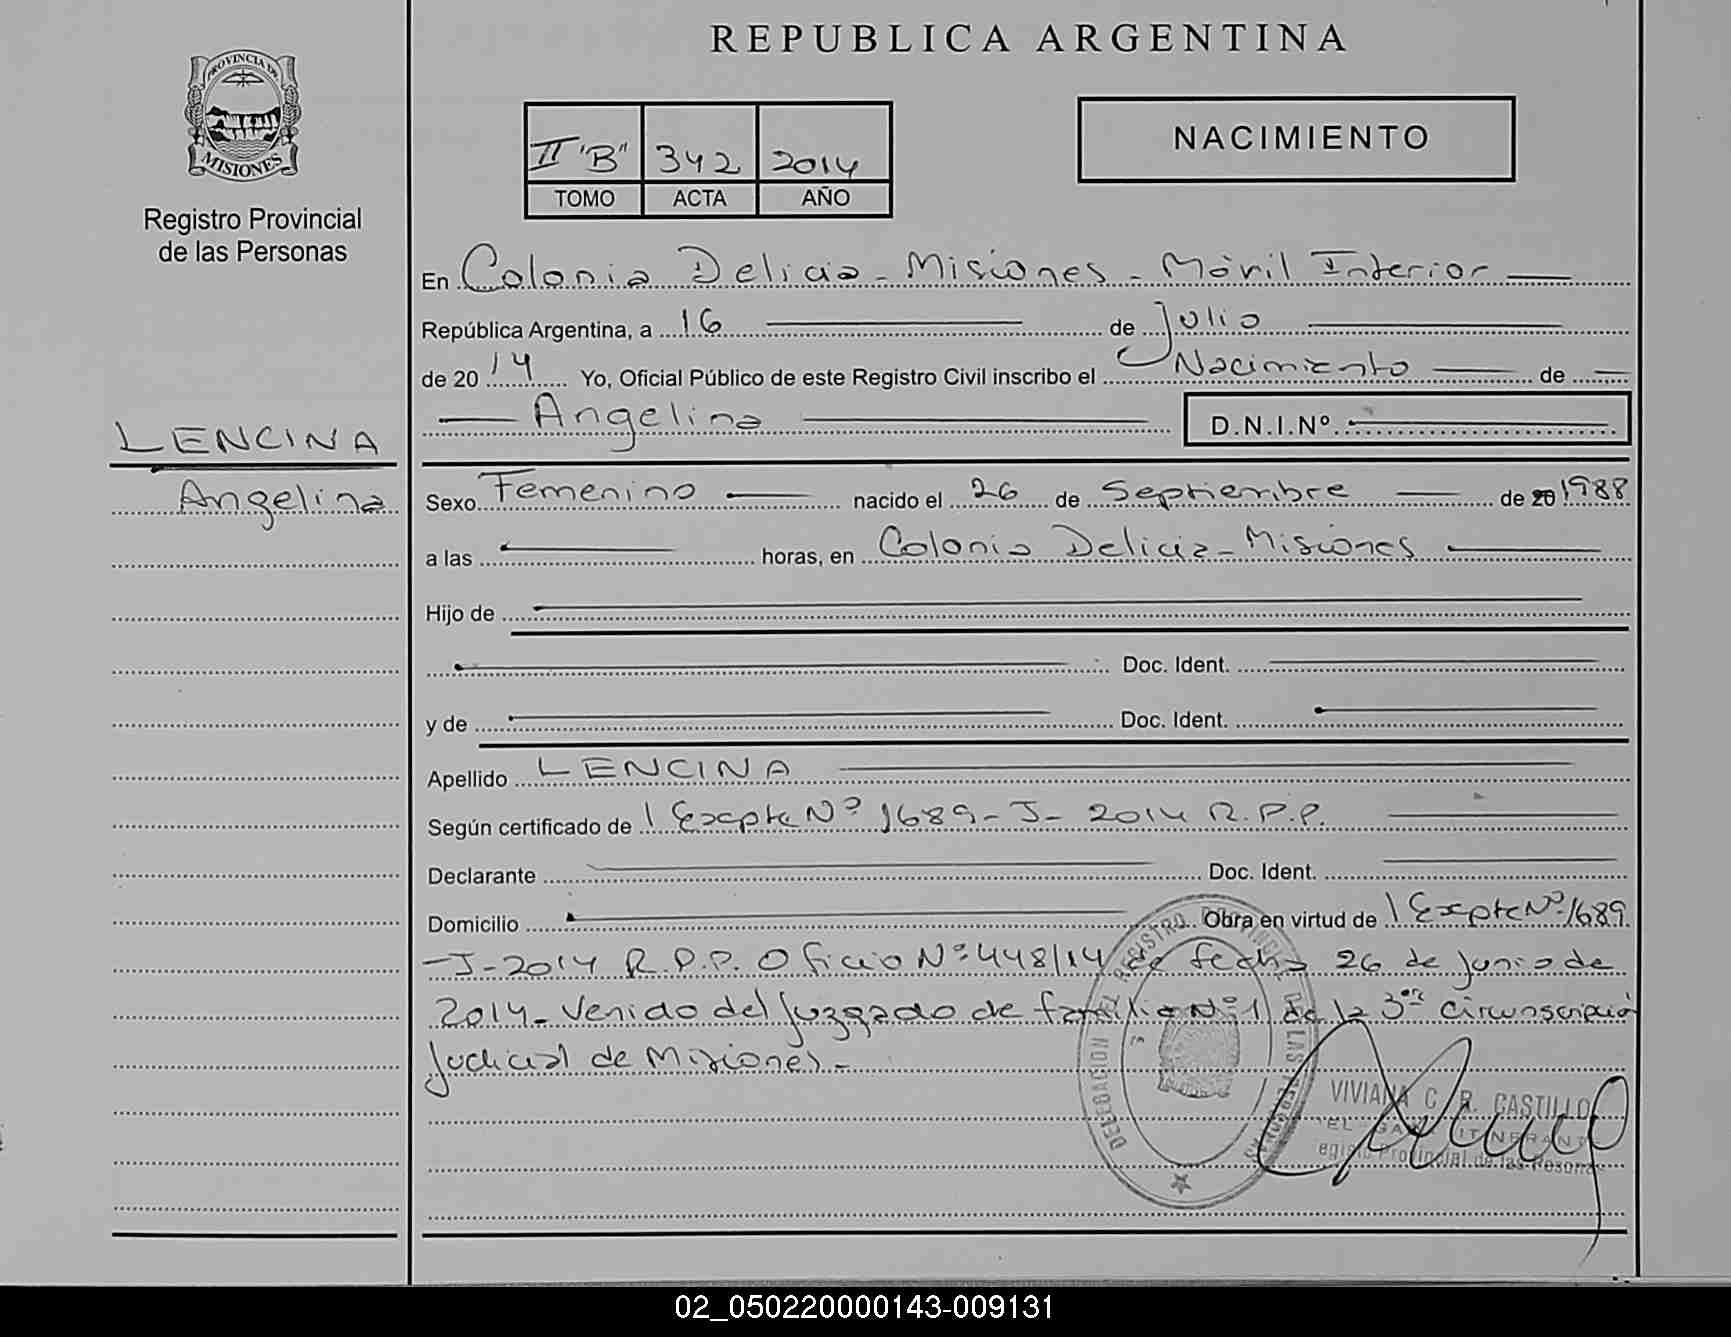 REPUBLICA ARGENTINA
PROVINCIA DE
MISIONES
Registro Provincial
de las Personas
II "B" 342 2014
TOMO ACTA AÑO
NACIMIENTO
En Colonia Delicia - Misiones - Móvil Interior
República Argentina, a 16 de Julio
de 2014 Yo, Oficial Público de este Registro Civil inscribo el Nacimiento de
Angelina D.N.I.Nº
LENCINA
Angelina
Sexo Femenino nacido el 26 de Septiembre de 20 1988
a las horas, en Colonia Delicia - Misiones
Hijo de
Doc. Ident.
y de Doc. Ident.
Apellido LENCINA
Según certificado de / Expte Nº 1689-J-2014 R.P.P.
Declarante Doc. Ident.
Domicilio Obra en virtud de / Expte Nº 1689
-J-2014 R.P.P. Oficio Nº 448/14 de fecha 26 de Junio de
2014 - Venido del Juzgado de familia Nº 1 de la 3er Circunscripción
Judicial de Misiones -
DELEGACION DEL REGISTRO PROVINCIAL DE LAS PERSONAS
VIVIANA C. R. CASTILLO
Registro Provincial de las Personas
02_050220000143-009131